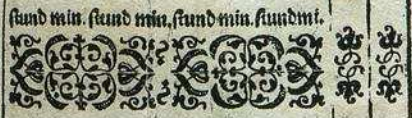 stund min. stund min. stund min. stund mi.